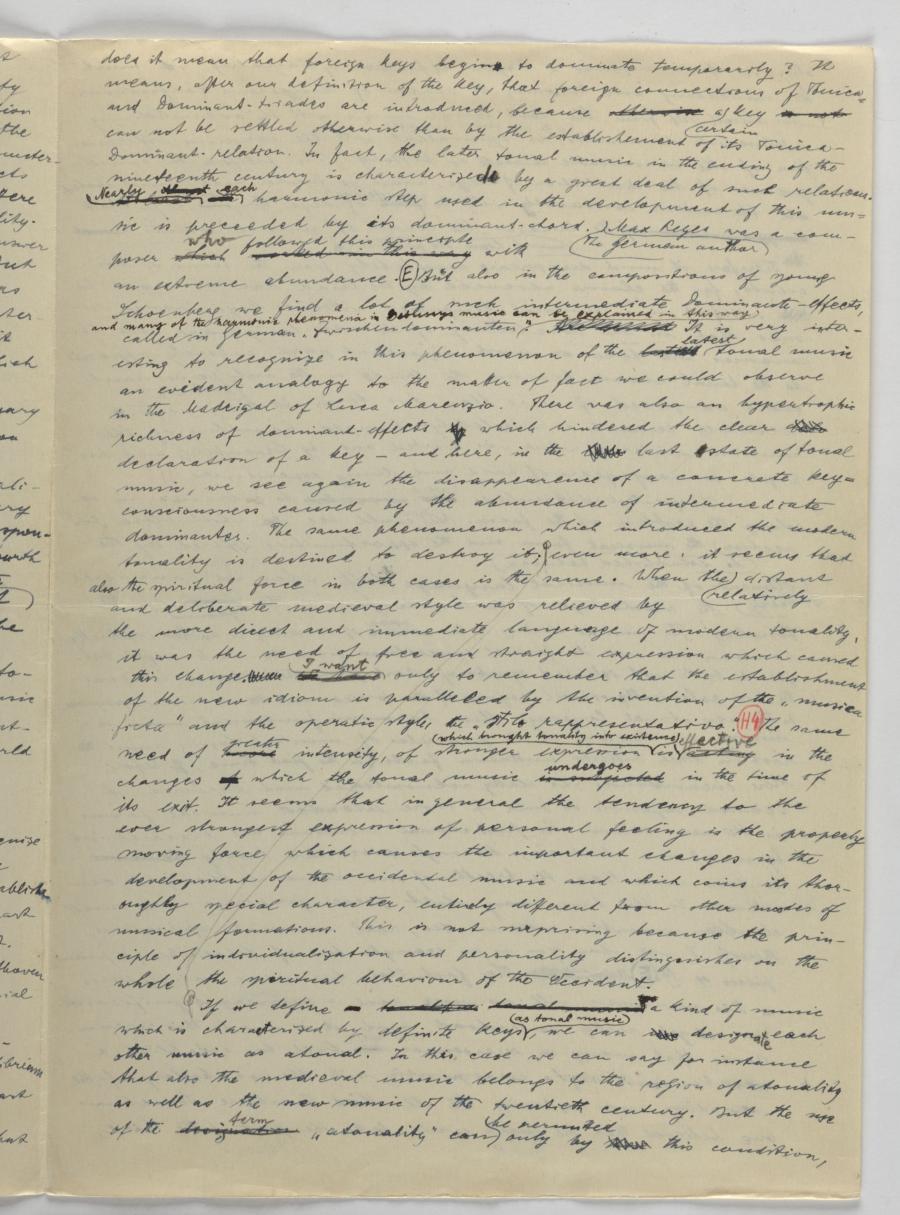 does it mean that foreign keys begin to dominate temporarily? It
means, after our definition of the key, that foreign connections of Tonica-
and Dominant-triades are introduced, because otherwise a key is not
can not be settled otherwise than by the establishement of its Tonica-
certain
Dominant-relation. In fact, the later tonal music in the ending of the
nineteenth century is characterized by a great deal of such relations.
Nearly almost each
harmonic step used in the development of this mu=
sic is preceded by its dominant-chord. Max Reger was a com-
who followed this principle The german author
poser which worked in this way with
an extreme abundance. E But also in the compositions of young
Schoenberg we find a lot of such intermediate Dominante-effects,
and many of the harmonic phenomena in Debussys music can be explained in this way
called in german „Zwischendominanten". It is very inter-
latest
esting to recognize in this phenomenon of the tonal music
an evident analogy to the matter of fact we could observe
in the Madrigal of Luca Marenzio. There was also an hypertrophic
richness of dominant-effects which hindered the clear
declaration of a key – and here, in the last state of tonal
music, we see again the disappearence of a concrete key=
consciousness caused by the abundance of intermediate
dominantes. The same phenomenon which introduced the modern
tonality is destined to destroy it; even more: it seems that
also the spiritual force in both cases is the same. When the distant
and deliberate medieval style was relieved by relatively
the more direct and immediate language of modern tonality,
it was the need of free and straight expression which caused
I want
this change. only to remember that the establishment
of the new idiom is paralleled by the invention of the „musica
ficta" and the operatic style, the „stile rappresentativo". H4 The same
greater which brought tonality into existence effective
need of intensity, of stronger expression is acting in the
undergoes
changes of which the tonal music is subjected in the time of
its exit. It seems that in general the tendency to the
ever strongest expression of personal feeling is the properly
moving force which causes the important changes in the
development of the occidental music and which coins its thor-
oughly special character, entirely different from other modes of
musical formations. This is not surprising because the prin-
ciple of individualization and personality distinguishes on the
whole the spiritual behaviour of the Occident.
If we define a kind of music
as tonal music
which is characterized by definite keys, we can designate each
other music as atonal. In this case we can say for instance
that also the medieval music belongs to the region of atonality
as well as the new music of the twentieth century. But the use
term be permitted
of the designation „atonality" can only by this condition,